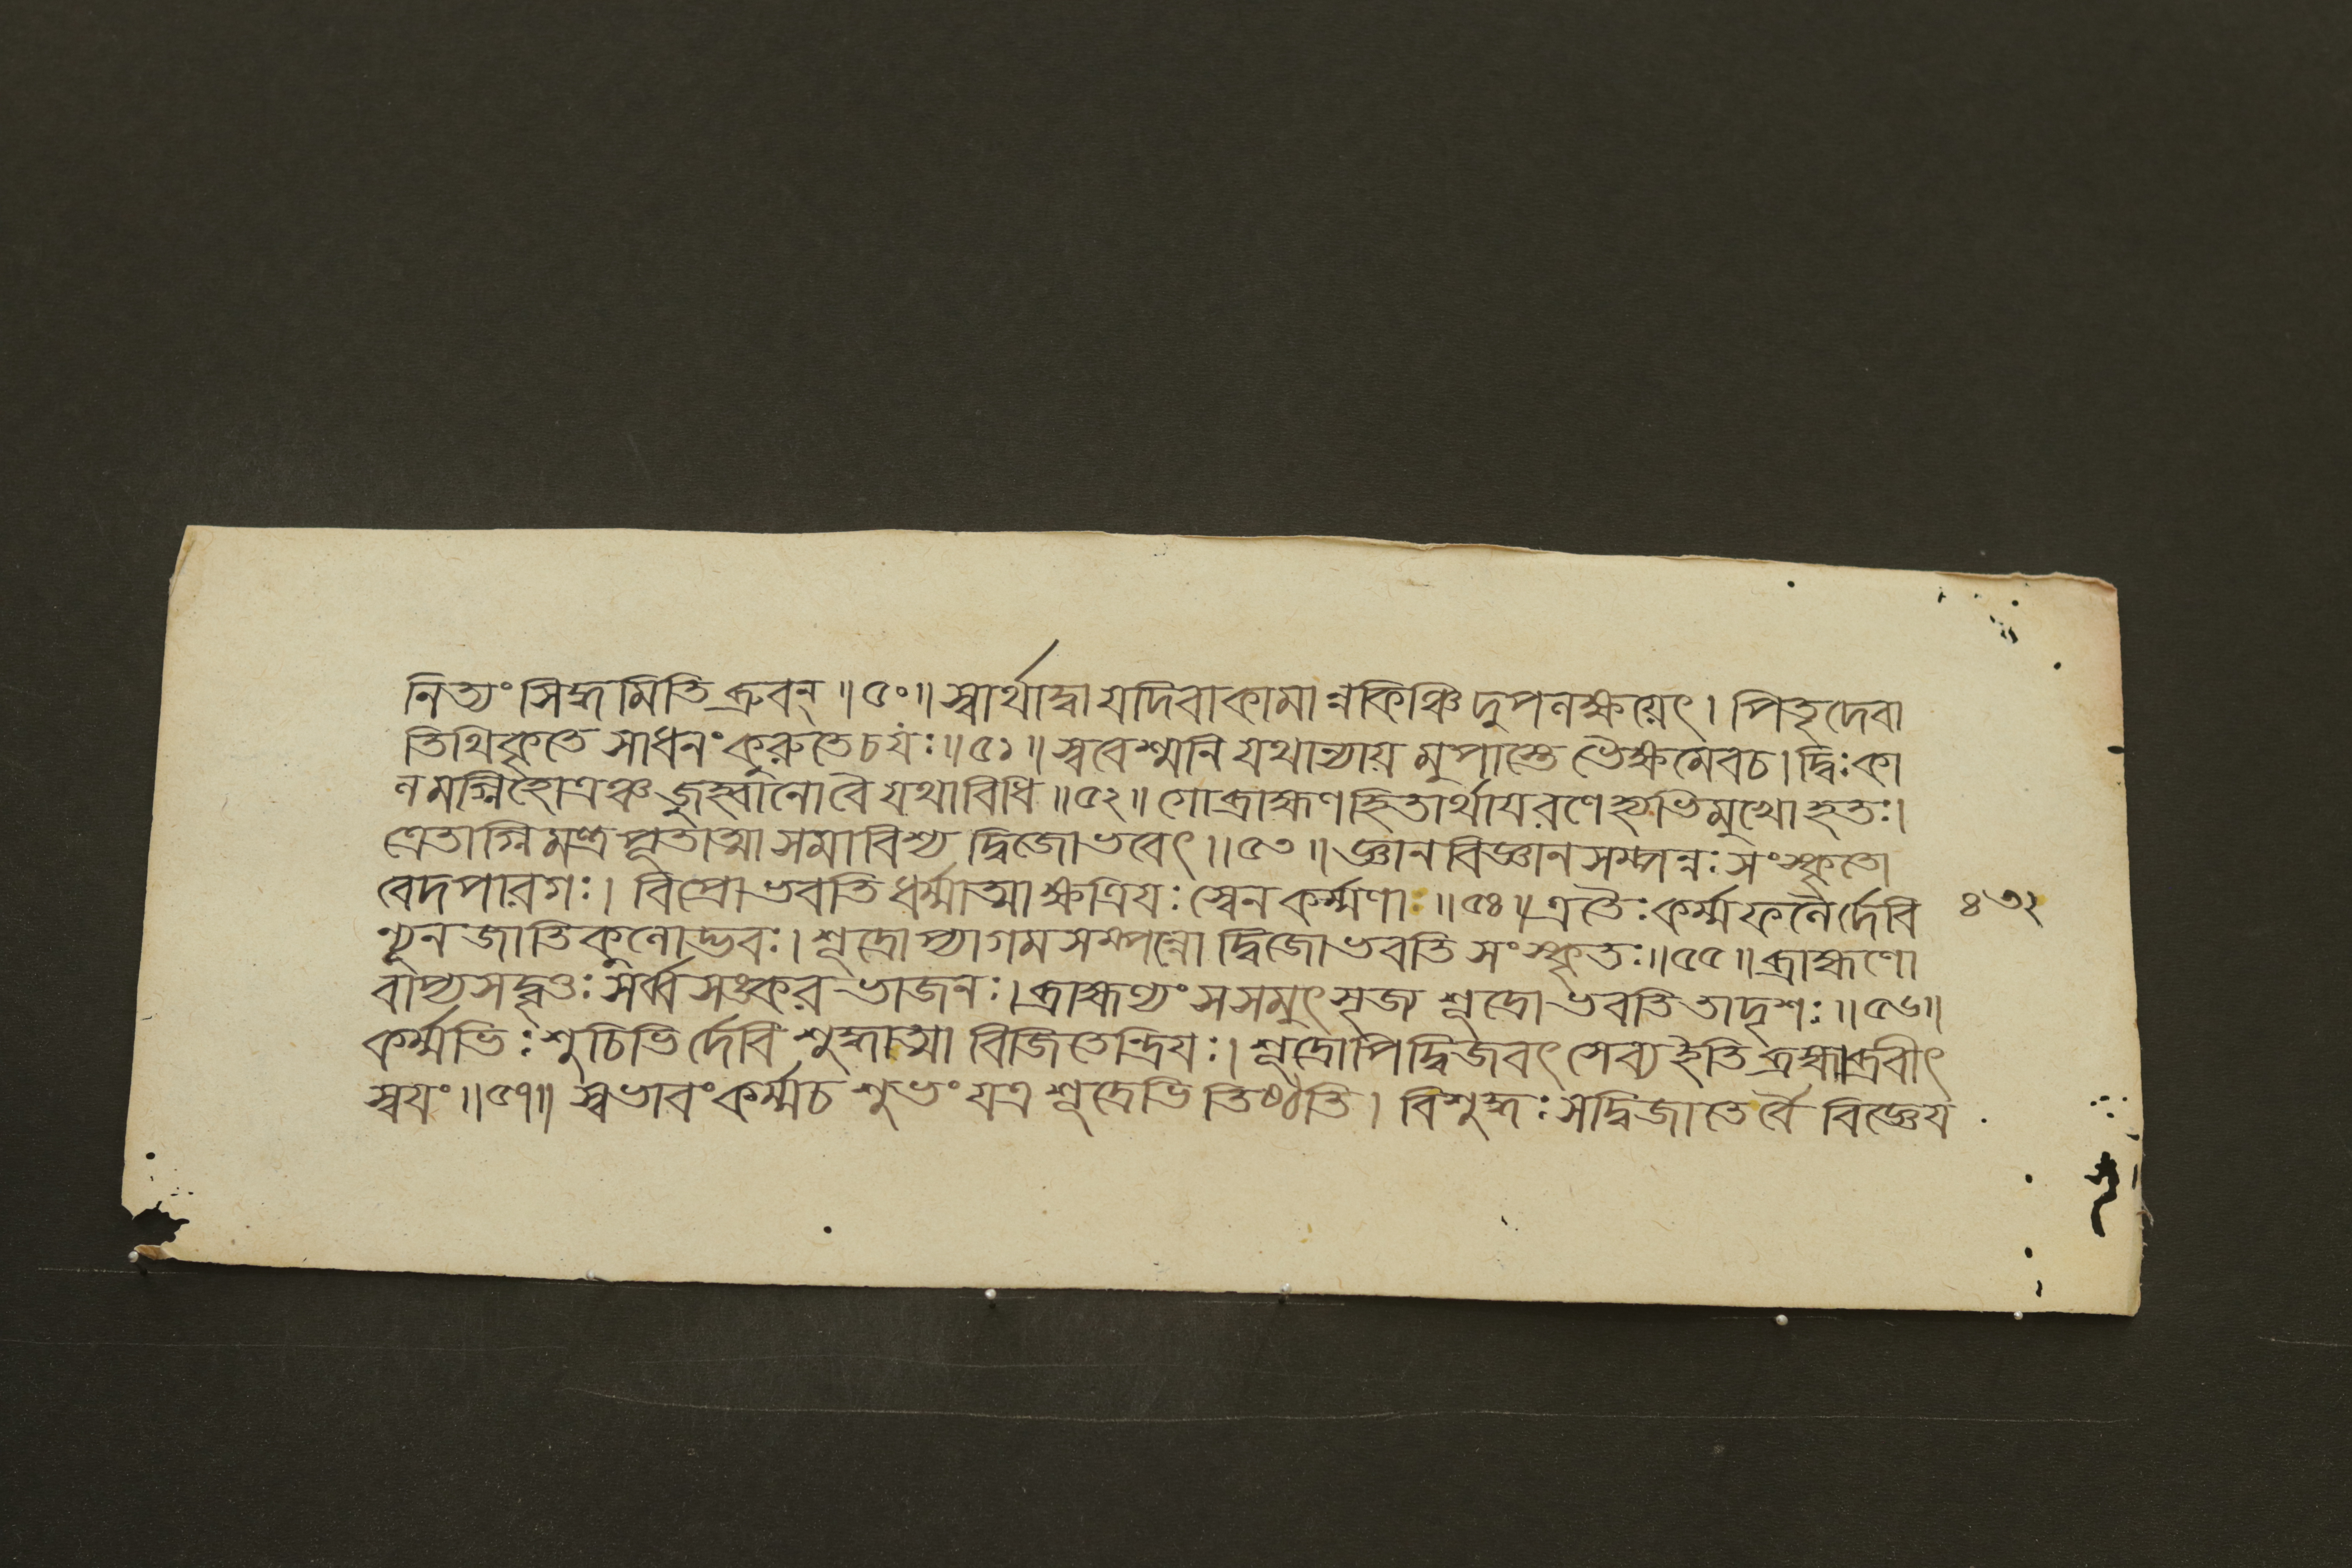 নিত্যং সিদ্ধমিতি ব্রুবন্ ॥ ৫০ ॥ স্বার্থাদ্বা যদিবাকামান্নকিঞ্চিদুপলক্ষয়েৎ । পিতৃদেবা
তিথিকৃতে সাধনং কুরুতে চযঃ ॥ ৫১ ॥ স্ববেশ্মনি যথান্যায়মুপাস্তে ভৈক্ষমেবচ । দ্বিঃকা
লমগ্নিহোত্রঞ্চ জুহ্বানো বৈ যথাবিধি ॥ ৫২ ॥ গোব্রাহ্মণহিতার্থায রণেহ্যভিমুখোহতঃ ।
ত্রেতাগ্নিমন্ত্রপূতাত্মা সমাবিশ্য দ্বিজোভবেৎ ॥ ৫৩ ॥ জ্ঞানবিজ্ঞানসম্পন্নঃ সংস্কৃতো
বেদপারগঃ । বিপ্রো ভবতি ধর্ম্মাত্মা ক্ষত্রিযঃ স্বেন কর্ম্মণা ॥ ৫৪ ॥ এতৈঃ কর্ম্মফলৈর্দেবি ৪৩২
ন্যূনজাতিকুলোদ্ভবঃ । শূদ্রোপ্যাগমসম্পন্নো দ্বিজোভবতি সংস্কৃতঃ ॥ ৫৫ ॥ ব্রাহ্মণো
বাপ্যসদ্বৃত্তঃ সর্ব্বসঙ্করভোজনঃ । ব্রাহ্মণ্যং সসমুৎসৃজ্য শূদ্রোভবতি তাদৃশঃ ॥ ৫৬ ॥
কর্ম্মভিঃ শুচিভির্দেবি শুদ্ধাত্মা বিজিতেন্দ্রিযঃ । শূদ্রোপি দ্বিজবৎ সেব্য ইতি ব্রহ্মাব্রবীৎ
স্বযং ॥ ৫৭ ॥ স্বভাবং কর্ম্মচ শুভং যত্র শূদ্রেভিতিষ্ঠতি । বিশুদ্ধঃ সদ্বিজাতের্বৈ বিজ্ঞেয